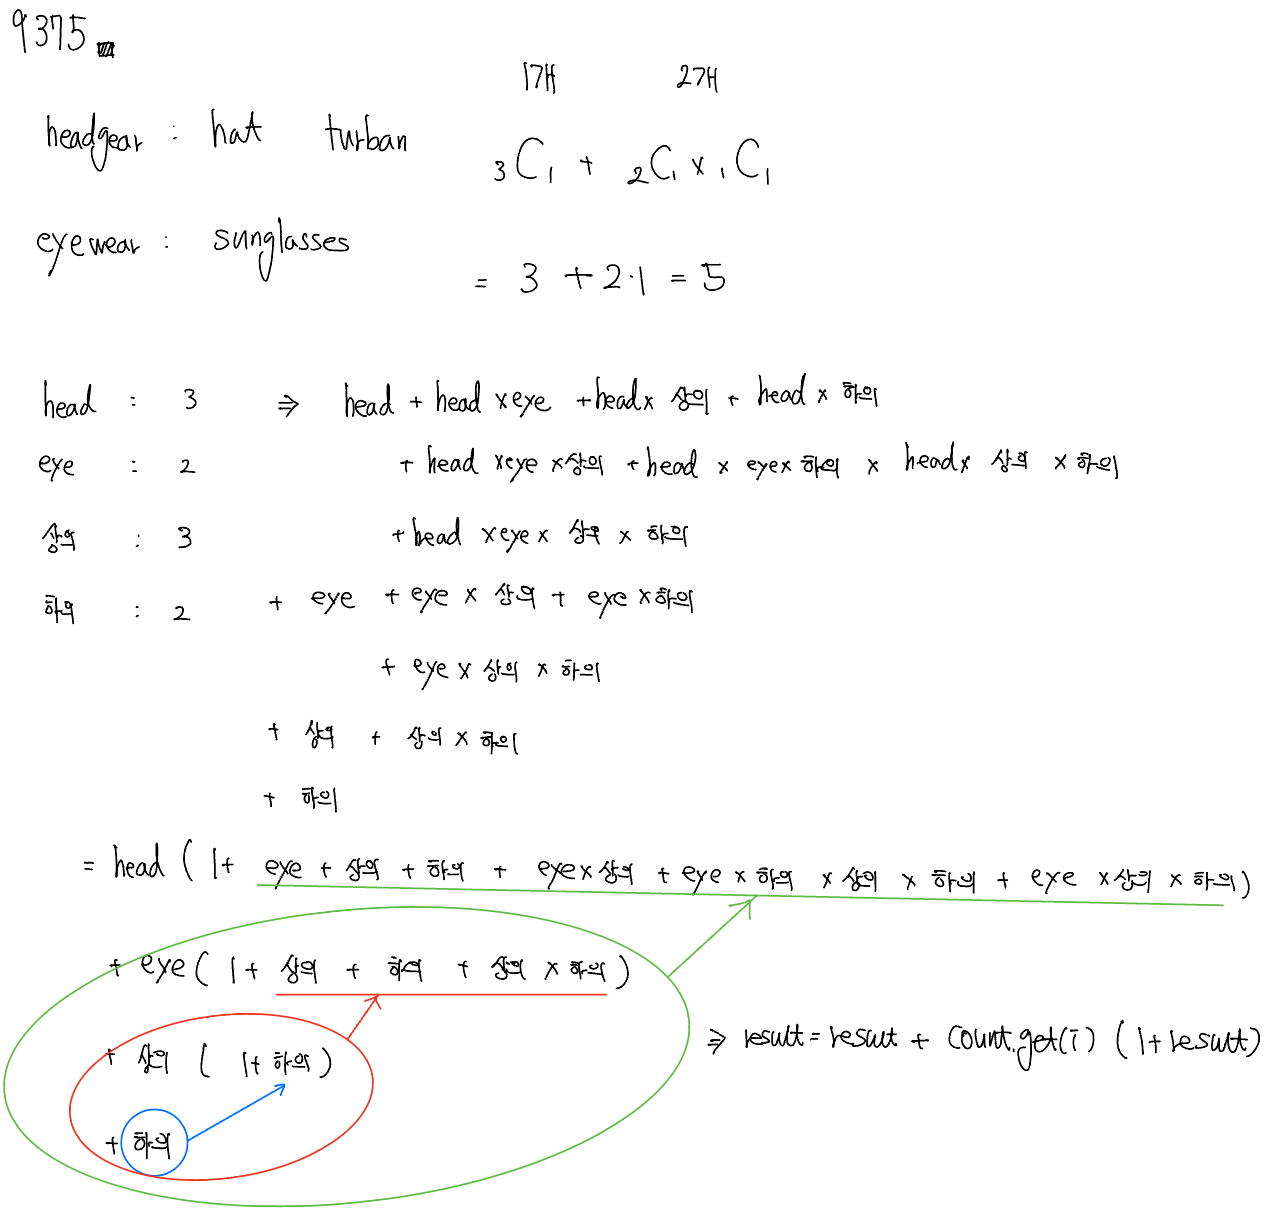 9375
1개 2개
headgear : hat turban ₃C₁ + ₂C₁ × ₁C₁
eyewear : sunglasses
= 3 + 2·1 = 5
head : 3 ⇒ head + head × eye + head × 상의 + head × 하의
eye : 2 + head × eye × 상의 + head × eye × 하의 × head × 상의 × 하의
상의 : 3 + head × eye × 상의 × 하의
하의 : 2 + eye + eye × 상의 + eye × 하의
+ eye × 상의 × 하의
+ 상의 + 상의 × 하의
+ 하의
= head ( 1 + eye + 상의 + 하의 + eye × 상의 + eye × 하의 × 상의 × 하의 + eye × 상의 × 하의 )
+ eye ( 1 + 상의 + 하의 + 상의 × 하의 )
⇒ result = result + count.get(i) ( 1 + result )
+ 상의 ( 1 + 하의 )
+ 하의